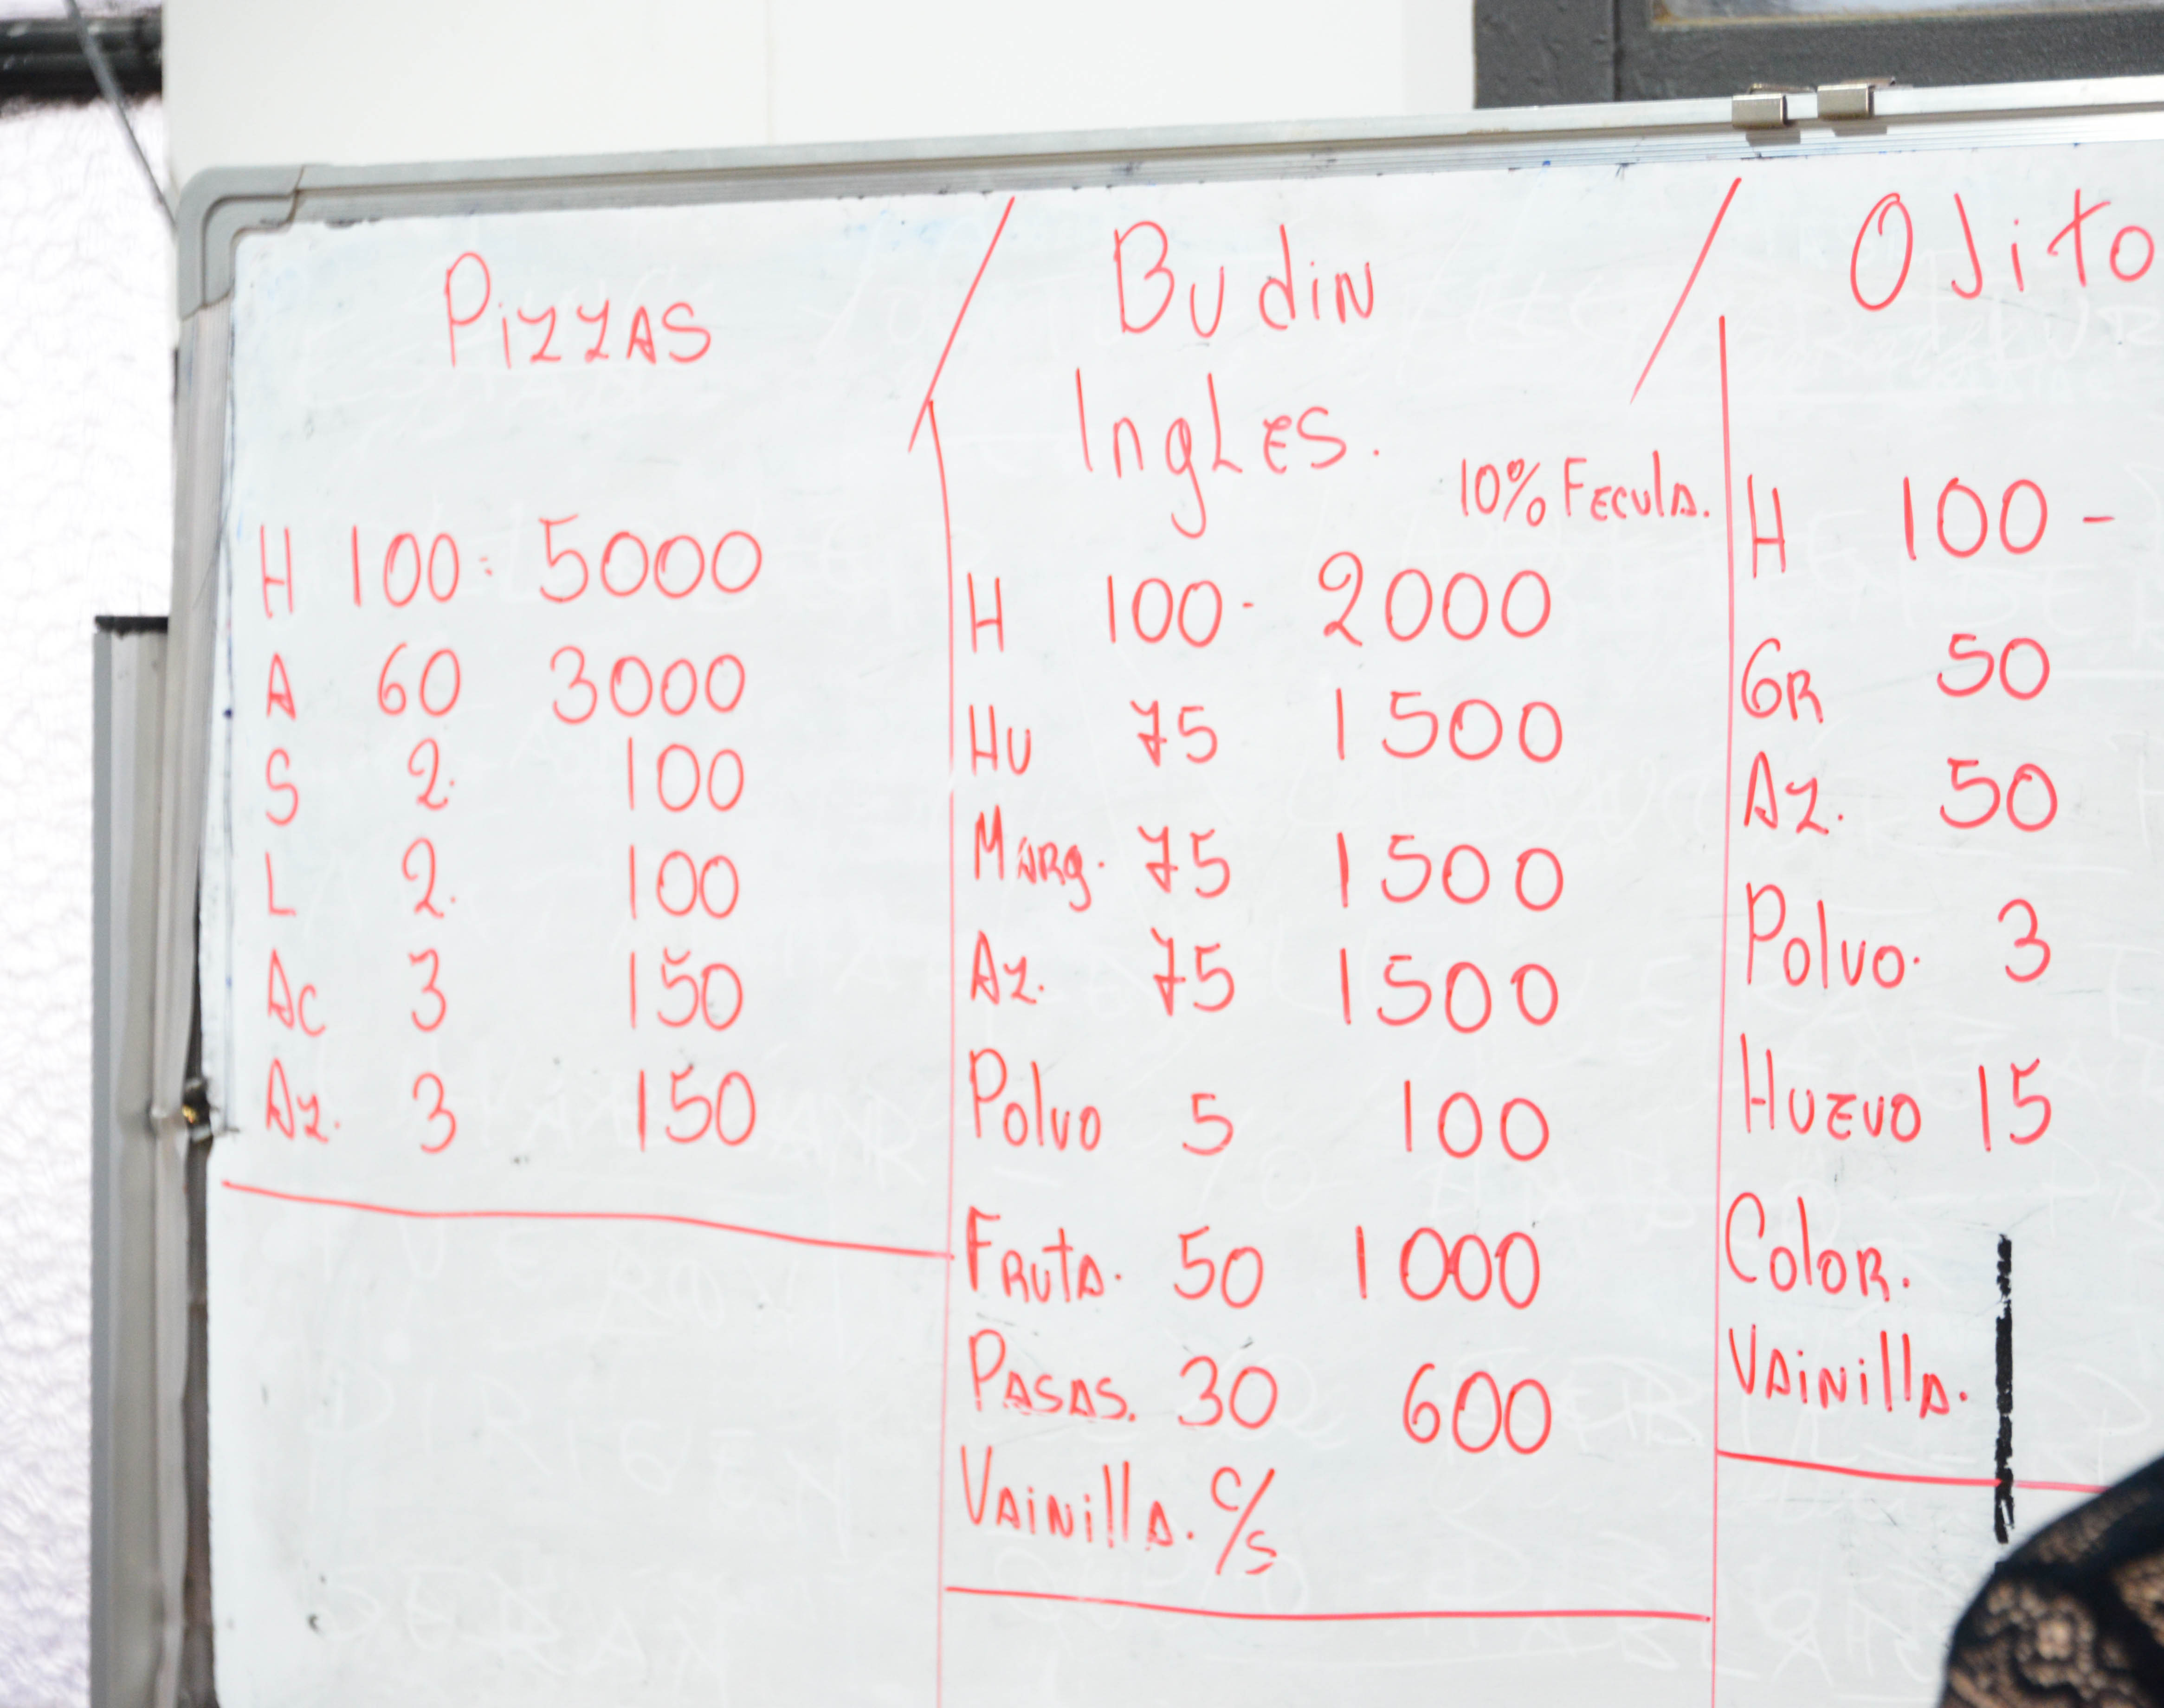 PIZZAS
H 100: 5000
A 60 3000
S 2. 100
L 2. 100
AC 3 150
AZ. 3 150
BUdiN
INgLES.
10% FECULA.
H 100- 2000
HU 75 1500
MARg. 75 1500
AZ. 75 1500
Polvo 5 100
FRUTA. 50 1000
PASAS. 30 600
VAiNillA. c/s
OJiTO
H 100 -
GR 50
AZ. 50
Polvo. 3
HUEVO 15
ColoR.
VAiNillA.